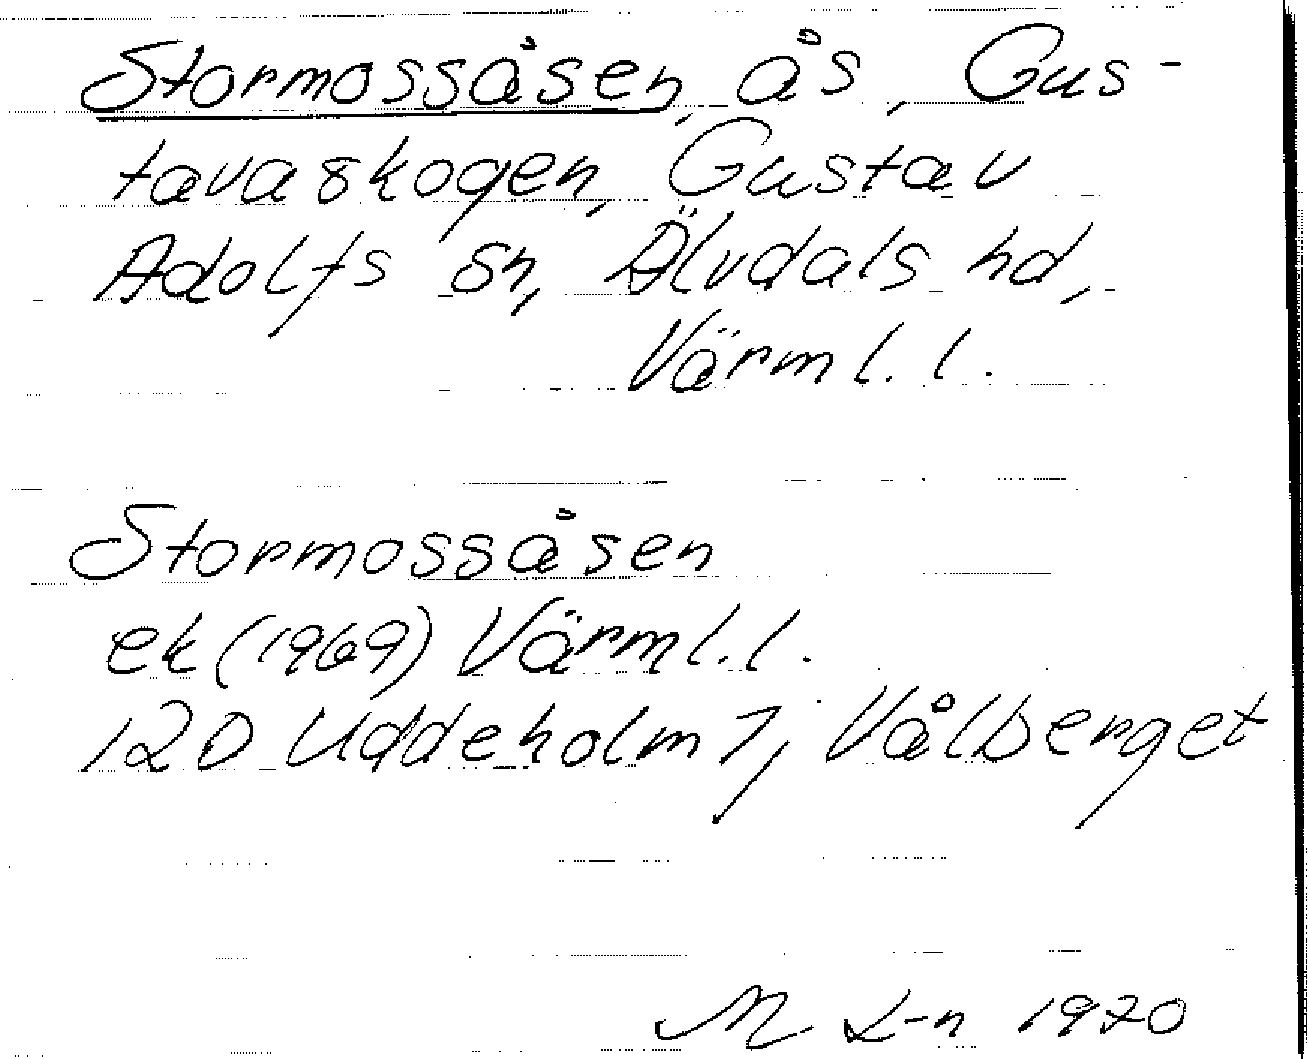 Stormossåsen, ås, Gus-
tavaskogen, Gustav
Adolfs sn, Älvdals hd,
Värml. l.
Stormossåsen
ek (1969) Värml. l.
12D Uddeholm 7, Vålberget
M L-n 1970